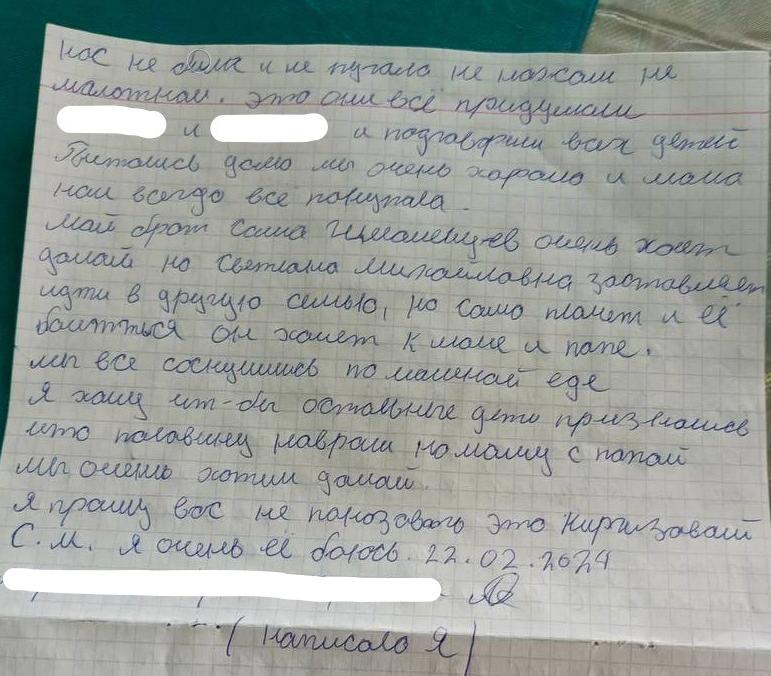 нас не била и не пугала не ножом не
молотком. это они всё придумали
и и подговорили всех детей
Питались дома мы очень харашо и мама
нам всегда всё покупала.
мой брат Саша очень хочет
домай но Светлана Михайловна заставляет
идти в другую семью, но Саша плачет и её
боитться он хочет к маме и папе.
мы все соскучились по маминай еде
Я хочу что-бы остальные дети признались
что половину наврали на маму с папой
мы очень хотим домай.
Я прошу вас не показовать это Киргизовай
С.М. я очень её боюсь. 22.02.2024
(написала Я)